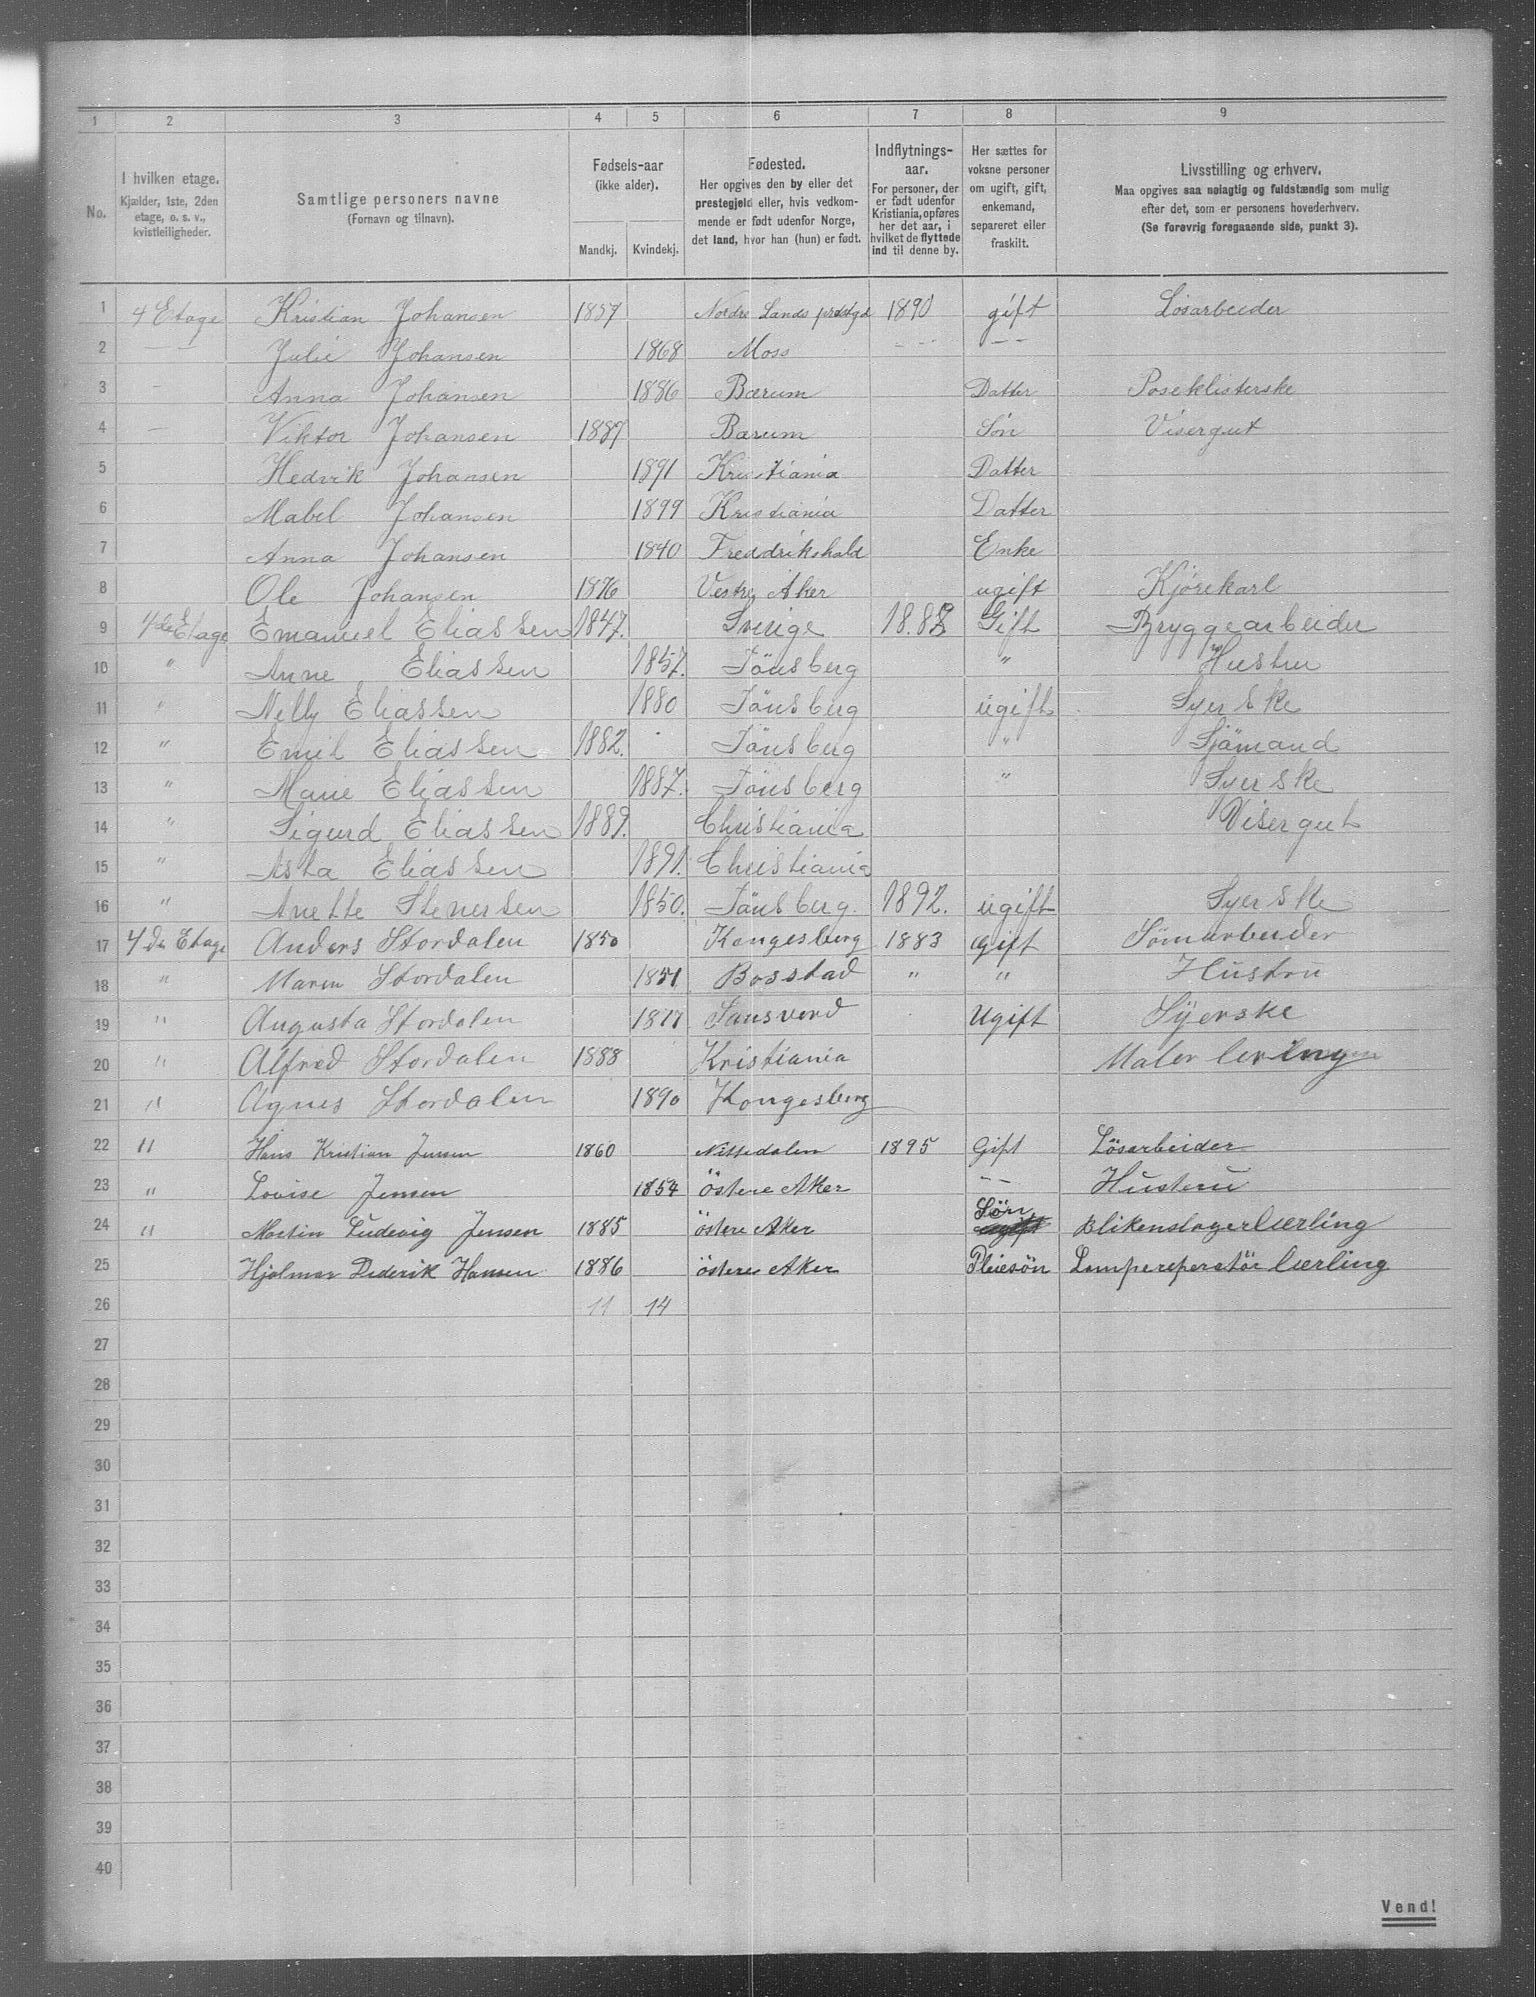 1 2 3 4 5 6 7 8 9
No. I hvilken etage. Kjælder, 1ste, 2den etage, o. s. v., kvistleiligheder. Samtlige personers navne (Fornavn og tilnavn). Fødsels-aar (ikke alder). Mandkj. Kvindekj. Fødested. Her opgives den by eller det prestegjeld eller, hvis vedkommende er født udenfor Norge, det land, hvor han (hun) er født. Indflytnings-aar. For personer, der er født udenfor Kristiania, opføres her det aar, i hvilket de flyttede ind til denne by. Her sættes for voksne personer om ugift, gift, enkemand, separeret eller fraskilt. Livsstilling og erhverv. Maa opgives saa nøiagtig og fuldstændig som mulig efter det, som er personens hovederhverv. (Se forøvrig foregaaende side, punkt 3).
1 4 Etage Kristian Johansen 1857 Nordre Lands prestgd 1890 gift Løsarbeider
2 — — Julie Johansen 1868 Moss — — — —
3 — Anna Johansen 1886 Bærum Datter Poseklisterske
4 — Viktor Johansen 1887 Bærum Søn Visergut
5 Hedvik Johansen 1891 Kristiania Datter
6 Mabel Johansen 1899 Kristiania Datter
7 Anna Johansen 1840 Freddrikshald Enke
8 Ole Johansen 1876 Vestre Aker ugift Kjørekarl
9 4de Etage Emanuel Eliassen 1847. Sverige Gift Bryggearbeider
10 " Anne Eliassen 1857. Tönsberg " Hustru
11 " Nelly Eliassen 1880 Tönsberg ugift Syerske
12 " Emil Eliassen 1882. Tönsberg " Sjömand
13 " Marie Eliassen 1887. Tönsberg " Syerske
14 " Sigurd Eliassen 1889. Christiania Visergut
15 " Asta Eliassen 1891. Christiania
16 " Anette Stenersen 1850. Tönsberg. 1892. ugift Syerske
17 4de Etage Anders Stordalen 1850 Kongesberg 1883 gift Tömarbeider
18 " Maren Stordalen 1851 " " Hustru
19 " Augusta Stordalen 1877 Ugift Syerske
20 " Alfred Stordalen 1888 Kristiania Maler lerling
21 " Agnes Stordalen 1890 Kongesberg
22 " Hans Kristian Jensen 1860 Nittedalen 1895 Gift Lösarbeider
23 " Lovise Jensen 1854 Östere Aker — — Husteru
24 " Martin Ludevig Jensen 1885 östere Aker Sön Blikenslager Lærling
25 Hjalmar Diderik Hansen 1886 östere Aker Pleiesön Lampereperatör Lærling
26 11 14
27
28
29
30
31
32
33
34
35
36
37
38
39
40
Vend!